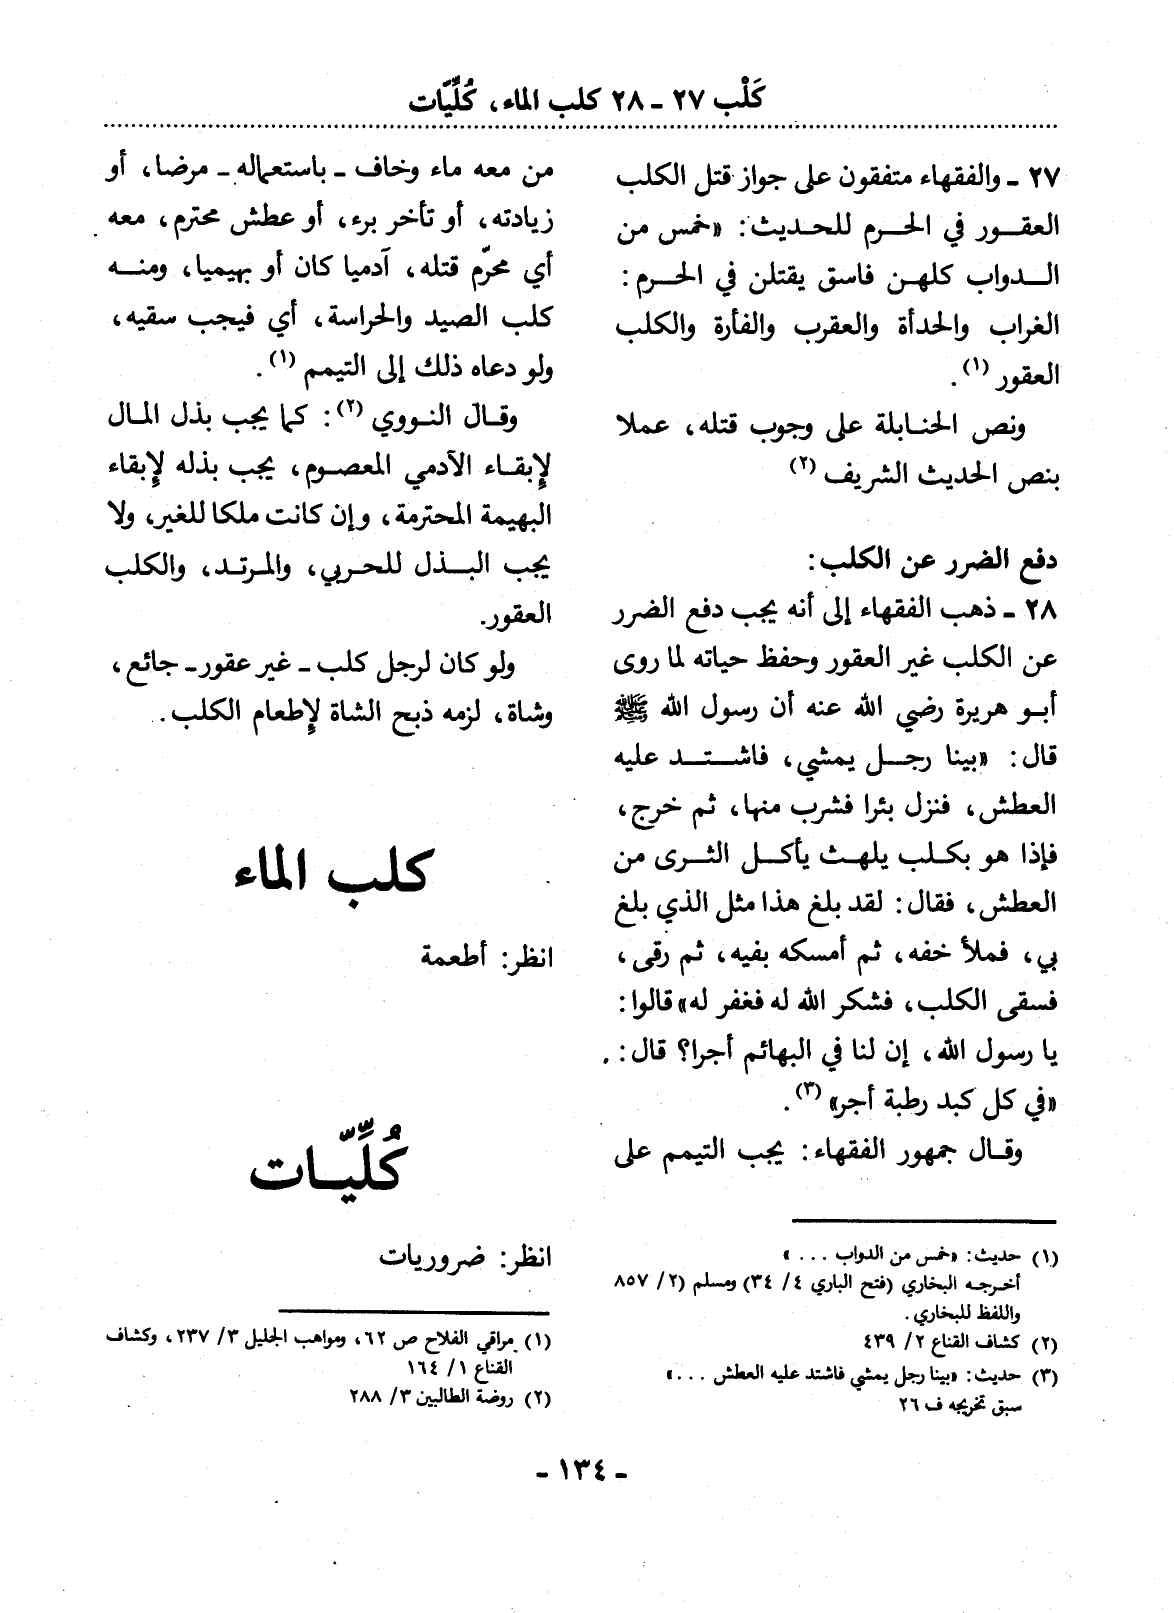 كَلْب ٢٧ ـ ٢٨ كلب الماء، كُلِّيَّات
٢٧ ـ والفقهاء متفقون على جواز قتل الكلب
العقور في الحرم للحديث: «خمس من
الدواب كلهن فاسق يقتلن في الحرم:
الغراب والحدأة والعقرب والفأرة والكلب
العقور (١).
ونص الحنابلة على وجوب قتله، عملا
بنص الحديث الشريف (٢)
دفع الضرر عن الكلب:
٢٨ ـ ذهب الفقهاء إلى أنه يجب دفع الضرر
عن الكلب غير العقور وحفظ حياته لما روى
أبو هريرة رضي الله عنه أن رسول الله ﷺ
قال: «بينا رجل يمشي، فاشتد عليه
العطش، فنزل بئرا فشرب منها، ثم خرج،
فإذا هو بكلب يلهث يأكل الثرى من
العطش، فقال: لقد بلغ هذا مثل الذي بلغ
بي، فملأ خفه، ثم أمسكه بفيه، ثم رقى،
فسقى الكلب، فشكر الله له فغفر له» قالوا:
يا رسول الله، إن لنا في البهائم أجرا؟ قال:
«في كل كبد رطبة أجر» (٣).
وقال جمهور الفقهاء: يجب التيمم على
(١) حديث: «خمس من الدواب . . . »
أخرجه البخاري (فتح الباري ٤/ ٣٤) ومسلم (٢/ ٨٥٧
واللفظ للبخاري.
(٢) كشاف القناع ٢/ ٤٣٩
(٣) حديث: «بينا رجل يمشي فاشتد عليه العطش . . . »
سبق تخريجه ف ٢٦
من معه ماء وخاف ـ باستعماله ـ مرضا، أو
زيادته، أو تأخر برء، أو عطش محترم، معه
أي محرّم قتله، آدميا كان أو بهيميا، ومنه
كلب الصيد والحراسة، أي فيجب سقيه،
ولو دعاه ذلك إلى التيمم (١).
وقال النووي (٢): كما يجب بذل المال
لإبقاء الآدمي المعصوم، يجب بذله لإبقاء
البهيمة المحترمة، وإن كانت ملكا للغير، ولا
يجب البذل للحربي، والمرتد، والكلب
العقور.
ولو كان لرجل كلب ـ غير عقور ـ جائع،
وشاة، لزمه ذبح الشاة لإطعام الكلب.
كلب الماء
انظر: أطعمة
كُلِّيَّات
انظر: ضروريات
(١) مراقي الفلاح ص ٦٢، ومواهب الجليل ٣/ ٢٣٧، وكشاف
القناع ١/ ١٦٤
(٢) روضة الطالبين ٣/ ٢٨٨
ـ ١٣٤ ـ